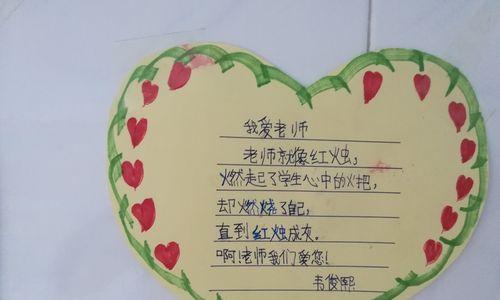 我爱老师
老师就象红烛，
燃起了学生心中的火把，
却燃烧了自己，
直到红烛成灰。
啊！老师我们爱您！
韦俊熙